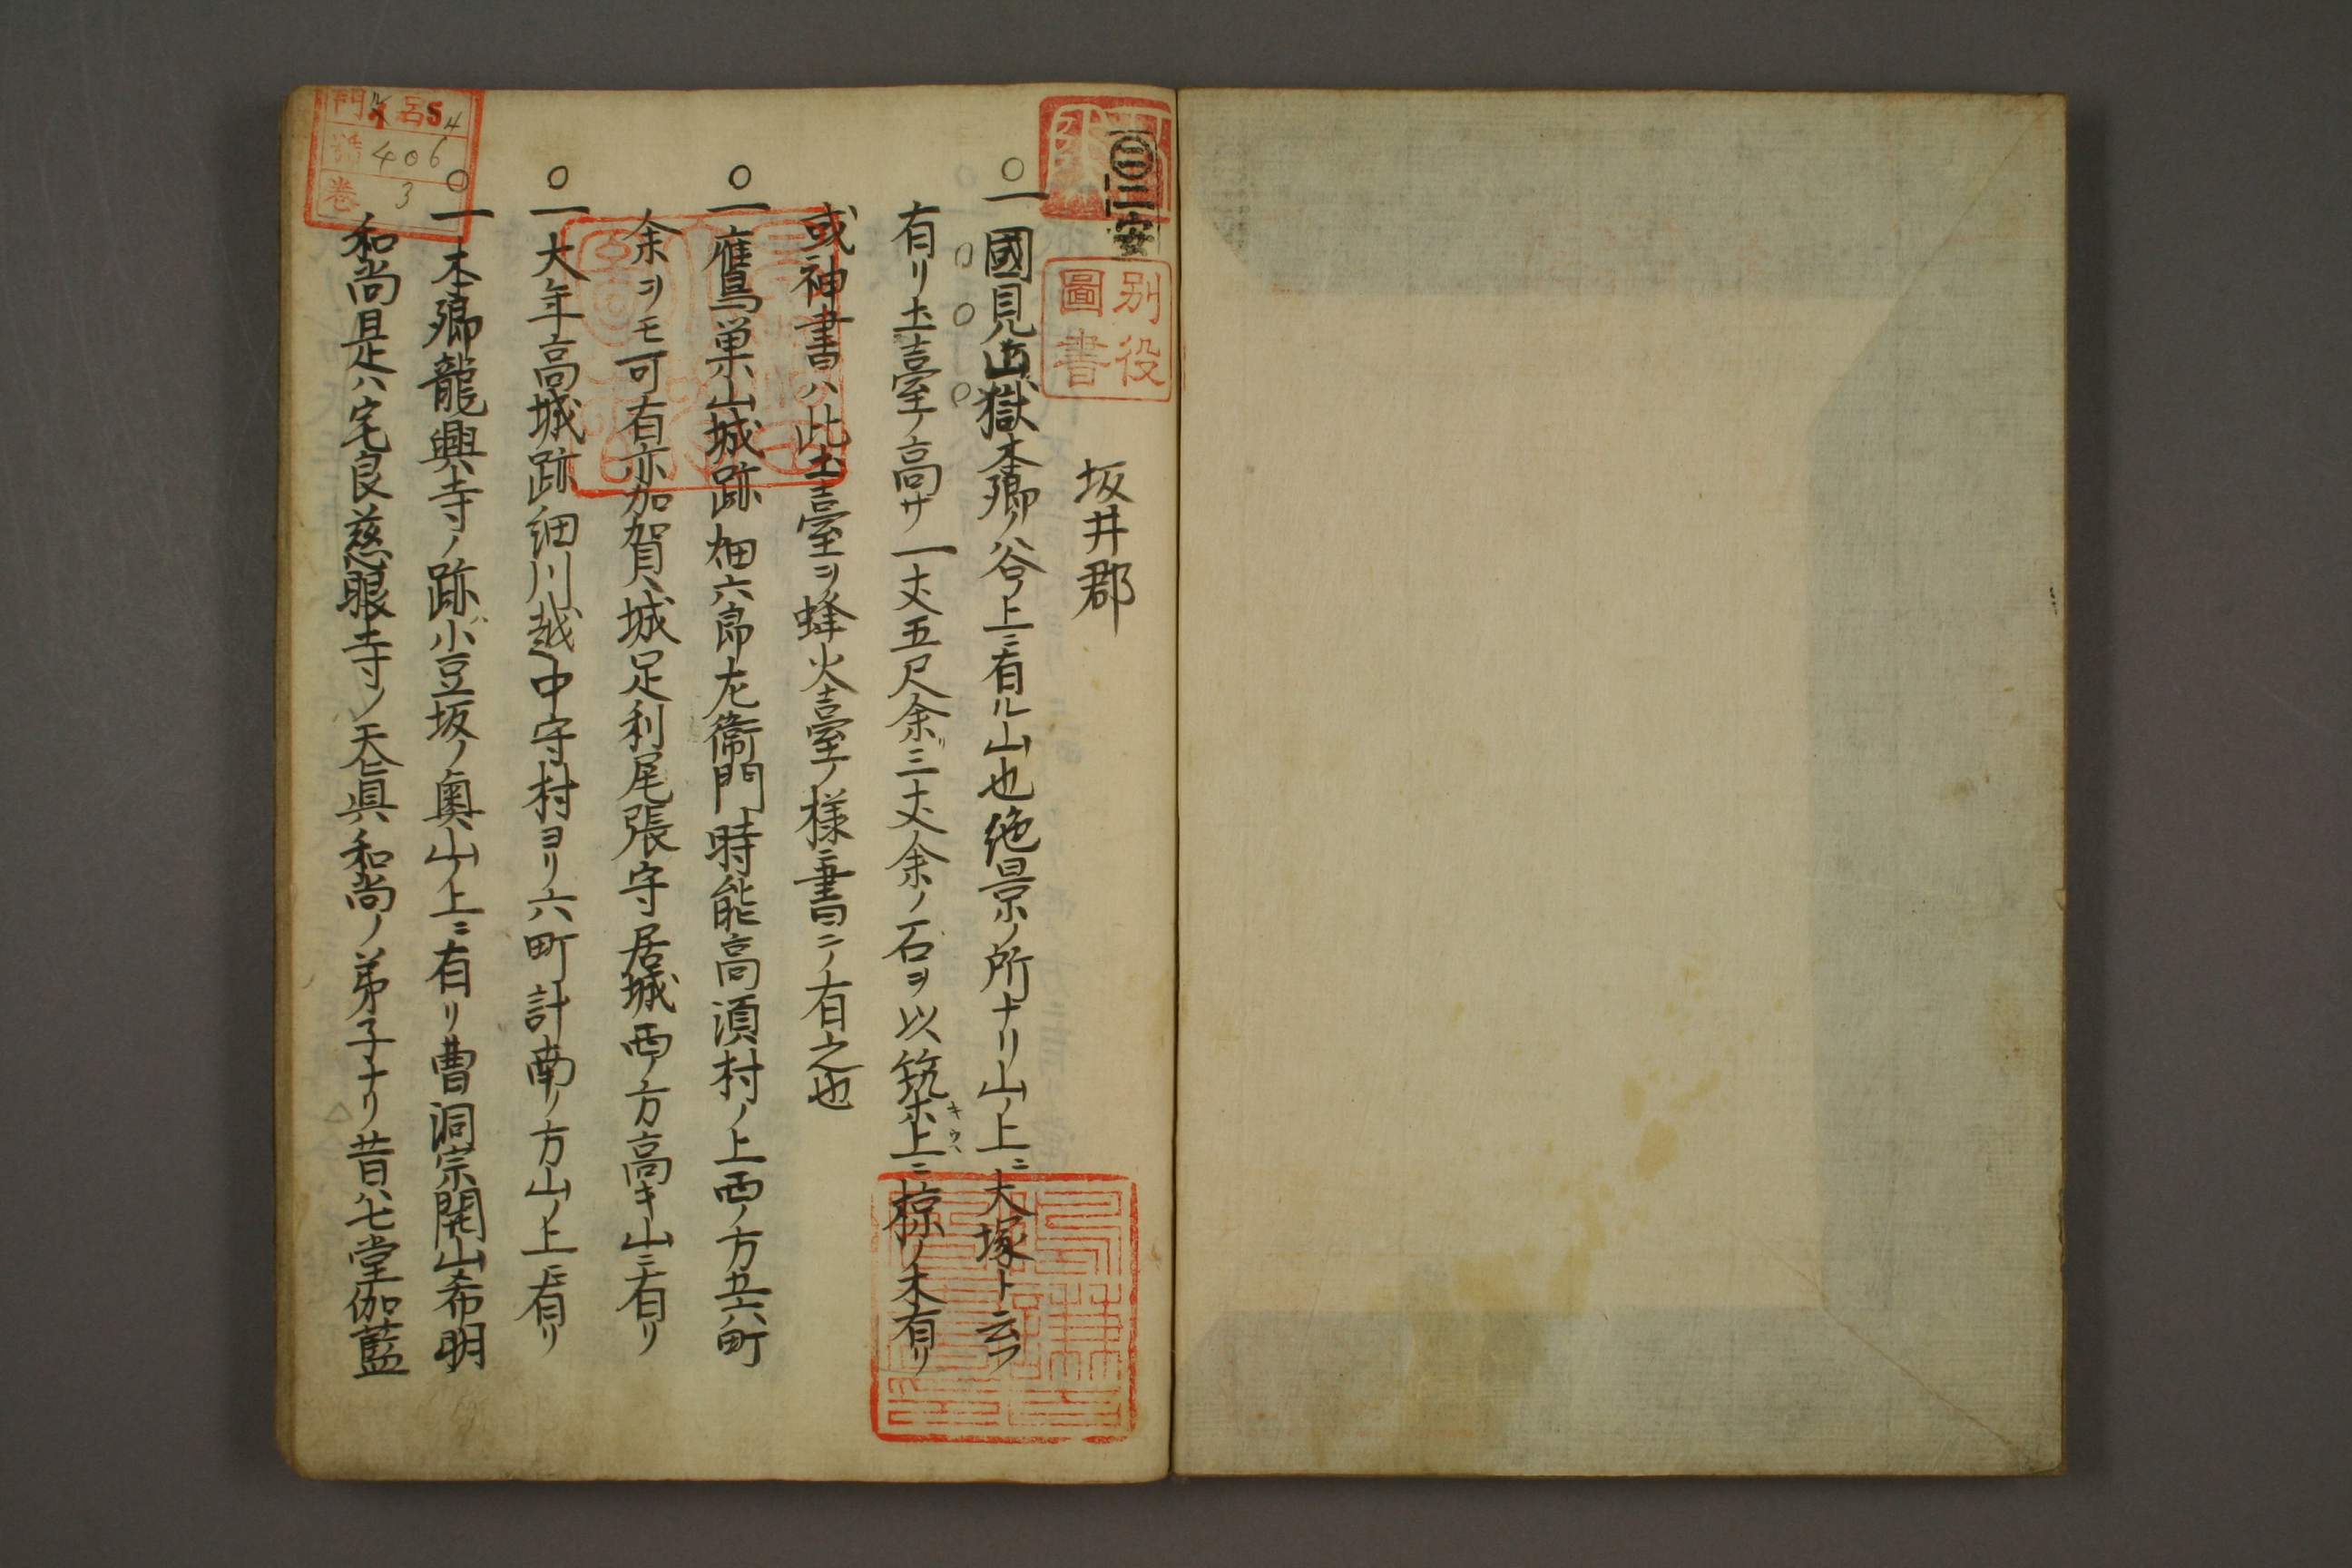 坂井郡
一國見山嶽本郷ノ谷ノ上ニ有ル山也絶景ノ所ナリ山ノ上ニ大塚ト云フ
有リ土臺ノ高サ一丈五尺余三丈余ノ石ヲ以築上ニ椋ノ木有リ
キウハ
或神書ハ此土臺ヲ蜂火臺ノ様ニ書ニノ有之也
一鷹巣山城跡畑六郎左衛門時能高須村ノ上西ノ方五六町
余ヲモ可有亦加賀ハ城足利尾張守居城西ノ方高キ山ニ有リ
一大年高城跡細川越中守村ヨリ六町計南ノ方山ノ上ニ有リ
一本郷龍興寺ノ跡ハ小豆坂ノ奥山ノ上ニ有リ曹洞宗開山希明
和尚是ハ宅良慈眼寺ノ天真和尚ノ弟子ナリ昔ハ七堂伽藍
別役
圖書
門 ル 呂 54
號 406
巻 3